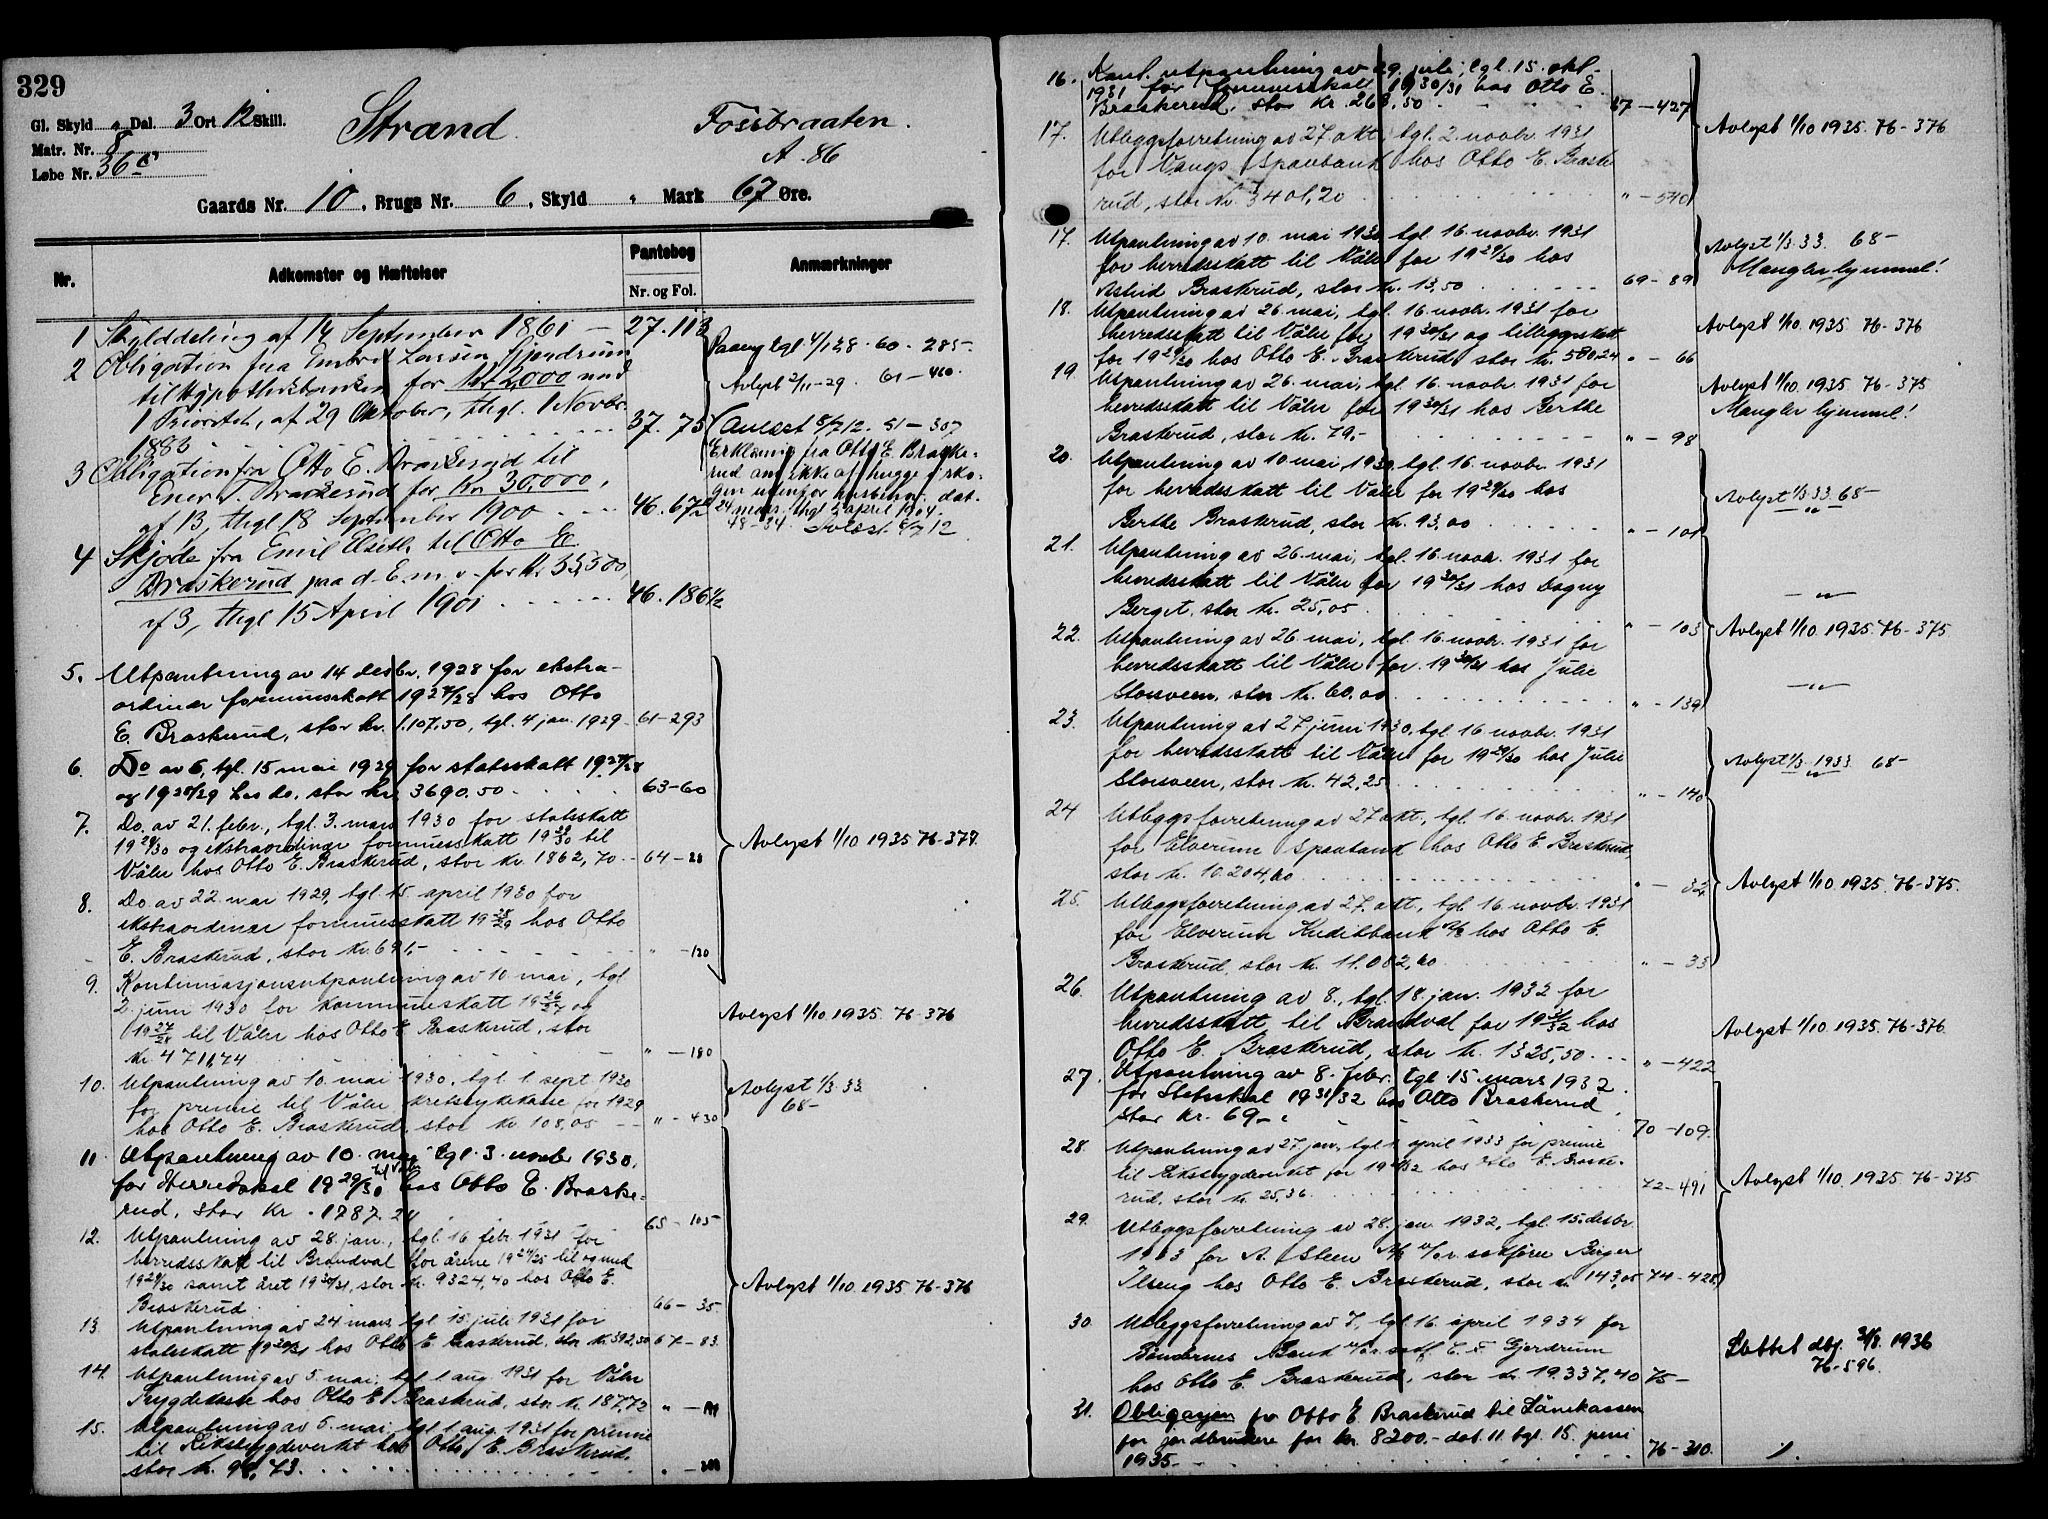 329
Gl. Skyld „ Dal. 3 Ort 12 Skill.
Matr. Nr. 8
Løbe Nr. 36c
Strand.
Fossbraaten.
A-86
Gaards Nr. 10, Brugs Nr. 6, Skyld „ Mark 67 Øre.
Nr.
Adkomster og Hæftelser
Pantebog
Nr. og Fol.
Anmærkninger
1 Skylddeling af 14 September 1861 — 27. 113
2 Obligation fra Embret Larsen Gjerdrum
til Hypothekbanken for Kr 2,000 med
1 Prioritet, af 29 Oktober, thgl. 1 Novbr.
1883 37. 75
3 Obligation fra Otto E. Braskerud til
Ener T. Braskerud for Kr 30,000,
af 13, thgl 18 September 1900 46. 67
4 Skjøde fra Emil Elseth til Otto E
Braskerud paa d. E. m. v. for Kr 35,500,
af 3, thgl 15 April 1901 46. 186½
Avlyst 2/11-29. 61-460.
Avlæst 8/7 12. 51-307
Erklæring fra Otto E. Braske-
rud om ikke at hugge i sko-
gen utenfor husbehov. dat.
24 mars, thgl 5 april 1904.
48-34. Avlæst 8/7 12
5. Utpantning av 14 desbr. 1928 for ekstra-
ordinær formuesskatt 1927/28 hos Otto
E. Braskerud, stor kr. 1.107,50, tgl. 4 jan. 1929 61-293
6. Do av 6, tgl. 15 mai 1929 for statsskatt 1927/28
og 1928/29 hos do. stor kr. 3690.50 63-60
7. Do. av 21. febr., tgl. 3. mars 1930 for statsskatt
1929/30 og ekstraordinær formuesskatt 1929/30 til
Våler hos Otto E. Braskerud, stor kr. 1862,70 64-28
8. Do av 22. mai 1929, tgl. 15. april 1930 for
ekstraordinær formuesskatt 1928/29 hos Otto
E. Braskerud, stor kr. 691,- „ -130
Avlyst 1/10 1935 76-377
9. Kontinuasjonsutpantning av 10 mai, tgl
2. juni 1930 for kommuneskatt 1926/27 og
1927/28 til Våler hos Otto E Braskerud, stor
kr. 4711,74 „ -180
Avlyst 1/10 1935. 76-376
10. Utpantning av 10. mai 1930, tgl. 1. sept 1930
for premie til Våler kretssykekasse for 1929
hos Otto E. Braskerud, stor kr. 108,05 „ -430
Avlyst 1/3 33.
68-
11. Utpantning av 10. mai tgl. 3. novbr 1930,
for Herredsskat 1929/30 til Våler hos Otto E. Braske-
rud, stor kr. 1787.24 65-105
12. Utpantning av 28. jan., tgl. 16 febr. 1931 for
herredsskatt til Brandval for årene 1924/25 til og med
1929/30 samt året 1930/31, stor kr. 9324,40 hos Otto E.
Braskerud 66-35
13. Utpantning av 24 mars, tgl 15. juli 1931 for
statsskatt 1930/31 hos Otto E. Braskerud, stor kr. 392,50 67-83.
14. Utpantning av 5. mai, tgl 1 aug. 1931 for Våler
Trygdekasse hos Otto E. Braskerud, stor kr. 187,72
15. Utpantning av 6. mai, tgl 1. aug. 1931 for premie
til Rikstrygdeverket hos Otto E. Braskerud,
stor kr. 94,73.
Avlyst 1/10 1935 76-376
16. Kont. utpantning av 29. juli, tgl. 15. okt.
1931 for formuesskatt 1930/31 hos Otto E.
Braskerud, stor kr. 268,50 67-427
17. Utleggsforretning av 27 okt. tgl. 2. novbr. 1931
for Vangs Sparebank hos Otto E. Braske
rud, stor kr. 3401,20 „ -540
Avlyst 1/10 1935. 76-376
17. Utpantning av 10. mai 1930 tgl. 16. novbr. 1931
for herredsskatt til Våler for 1929/30 hos
Astrid Braskerud, stor kr. 13,50 69-89
Avlyst 1/3. 33. 68-
Mangler hjemmel!
18. Utpantning av 26. mai, tgl. 16. novbr. 1931 for
herredsskatt til Våler for 1930/31 og tilleggsskatt
for 1929/30 hos Otto E. Braskerud, stor kr. 580,24 „ -66
Avlyst 1/10. 1935 76-376
19. Utpantning av 26. mai, tgl. 16. novbr. 1931 for
herredsskatt til Våler for 1930/31 hos Berthe
Braskerud, stor kr. 79,- „ -98
Avlyst 1/10 1935 76-375
Mangler hjemmel!
20. Utpantning av 10 mai 1930, tgl. 16. novbr. 1931
for herredsskatt til Våler for 1929/30 hos
Berthe Braskerud, stor kr. 93,00 „ -101
Avlyst 1/3 33. 68-
— „ —
21. Utpantning av 26. mai, tgl. 16. novbr. 1931 for
herredsskatt til Våler for 1930/31 hos Dagny
Berget, stor kr. 25,05 „ -103
— „ —
22. Utpantning av 26. mai, tgl. 16. novbr. 1931 for
herredsskatt til Våler for 1930/31 hos Julie
Storsveen, stor kr. 60,00 „ -139
Avlyst 1/10. 1935. 76-375
— „ —
23. Utpantning av 27 juni 1930, tgl. 16 novbr. 1931
for herredsskatt til Våler for 1929/30 hos Julie
Storsveen, stor kr. 42,25 „ -140
Avlyst 1/3. 1933. 68-
„
24 Utleggsforretning av 27 okt, tgl. 16. novbr. 1931
for Elverum Sparebank hos Otto E. Braskerud,
stor kr. 10.204,60 „ -32
25. Utleggsforretning av 27. okt., tgl. 16 novbr. 1931
for Elverum Kreditbank A/S hos Otto E.
Braskerud, stor kr. 11.082,60 „ -33
Avlyst 1/10. 1935. 76-375.
26. Utpantning av 8., tgl. 18. jan. 1932 for
herredsskatt til Brandval for 1931/32 hos
Otto E. Braskerud, stor kr. 1325,50 „ -422
Avlyst 1/10 1935. 76-376.
27. Utpantning av 8. febr. tgl. 15. mars 1932
for Statsskat 1931/32 hos Otto Braskerud
stor kr. 69- 70-109.
28. Utpantning av 27 jan., tgl 1. april 1933 for premie
til Rikstrygdeverket for 1931/32 hos Otto E. Braske-
rud, stor kr. 25,36 72-491
29. Utleggsforretning av 28. jan 1932, tgl. 15. desbr.
1933 for A. Steen A/S v/o.r. sakfører Birger
Ilseng hos Otto E. Braskerud, stor kr. 143,05 74-428
Avlyst 1/10. 1935. 76-375
30. Utleggsforretning av 7, tgl 16 april 1934 for
Bøndernes Bank v/o.r. sakf. C. F. Gjerdrum
hos Otto E. Braskerud, stor kr. 19.337,40 75-
Slettet dbj. 1936
76-596.
31. Obligasjon fr Otto E Braskerud til Lånekassen
for jordbrukere for kr. 8200.- dat. 11. tgl. 15. juni
1935. 76-310.
1.